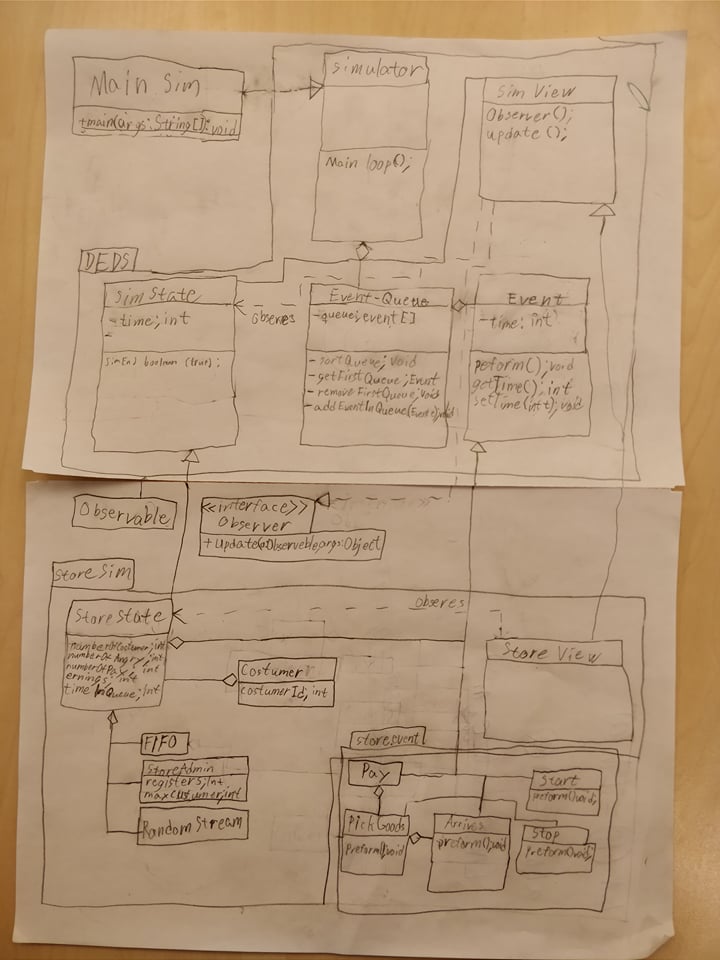 Main Sim
+main(args:String[]):void
simulator
Main loop();
Sim View
Observer();
update();
DEDS
sim State
-time; int
-
simEnd boolean (true);
Obseres
Event-Queue
-queue; event[]
- sortQueue; void
- getFirstQueue; Event
- removeFirstQueue; void
- addEventInQueue(Event e); void
Event
-time: int
peform(); void
getTime(); int
setTime(int t); void
Observable
<<interface>>
Observer
+ update(o:Observeble, args:Object
Store Sim
Store State
numberOfCostumer; int
numberOfAngry; int
numberOfPay; int
ernings; int
time InQueue; int
Obseres
Store View
Costumer
costumerId, int
FIFO
StoreAdmin
registers; Int
maxCustumer; int
Random Stream
storeevent
Pay
Pick Goods
preform(); void
Arrives
preform(); void
Start
preform() void;
Stop
preform() void;